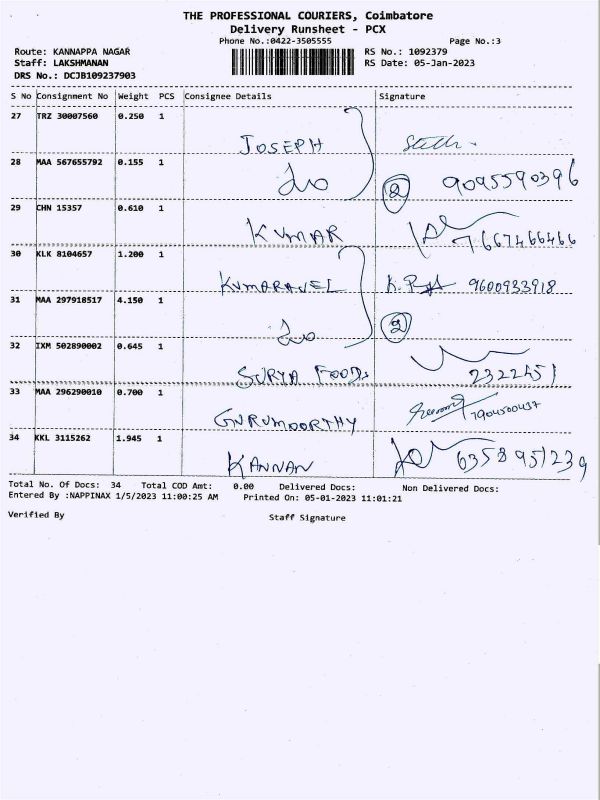 THE PROFESSIONAL COURIERS, Coimbatore
Delivery Runsheet - PCX
Phone No.:0422-3505555 Page No.:3
Route: KANNAPPA NAGAR RS No.: 1092379
Staff: LAKSHMANAN RS Date: 05-Jan-2023
DRS No.: DCJB109237903
S No Consignment No Weight PCS Consignee Details Signature
27 TRZ 30007560 0.250 1
JOSEPH
28 MAA 567655792 0.155 1
2 9095590396
29 CHN 15357 0.610 1
KUMAR 7667466466
30 KLK 8104657 1.200 1
KUMARAVEL K.P 9600933918
31 MAA 297918517 4.150 1
2
32 IXM 502890002 0.645 1
SURYA FOODS 2322451
33 MAA 296290010 0.700 1
GURUMOORTHY 7904500437
34 KKL 3115262 1.945 1
KANNAN 6358951239
Total No. Of Docs: 34 Total COD Amt: 0.00 Delivered Docs: Non Delivered Docs:
Entered By :NAPPINAX 1/5/2023 11:00:25 AM Printed On: 05-01-2023 11:01:21
Verified By Staff Signature